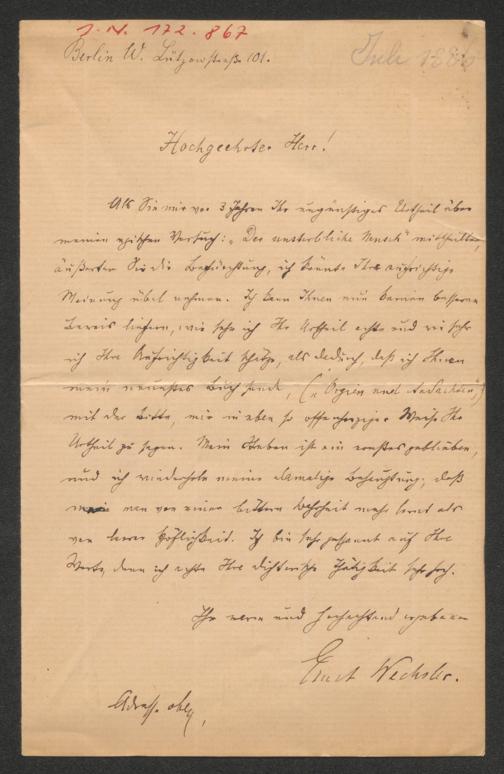 J. N. 172.867
Juli 1886
Berlin W. Lützowstraße 101.
Hochgeehrter Herr!
Als Sie mir vor 3 Jahren Ihr ungünstiges Urtheil über
meinen epischen Versuch: „Der unsterbliche Mensch" mittheilten,
äußerten Sie die Befürchtung, ich könnte Ihre aufrichtige
Meinung übel nehmen. Ich kann Ihnen nun keinen besseren
Beweis liefern, wie sehr ich Ihr Urtheil achte und wie sehr
ich Ihre Aufrichtigkeit schätze, als dadurch, daß ich Ihnen
mein neuestes Buch sende, („ und Andachten")
mit der Bitte, mir in eben so offenherziger Weise Ihr
Urtheil zu sagen. Mein Streben ist ein ernstes geblieben,
und ich wiederhole meine damalige Behauptung, daß
man von einer bittern Wahrheit mehr lernt als
von leerer Höflichkeit. Ich bin sehr gespannt auf Ihre
Worte, denn ich achte Ihre dichterische Thätigkeit sehr hoch.
Ihr und hochachtend ergebener
Ernst Wechsler.
Adresse oben,